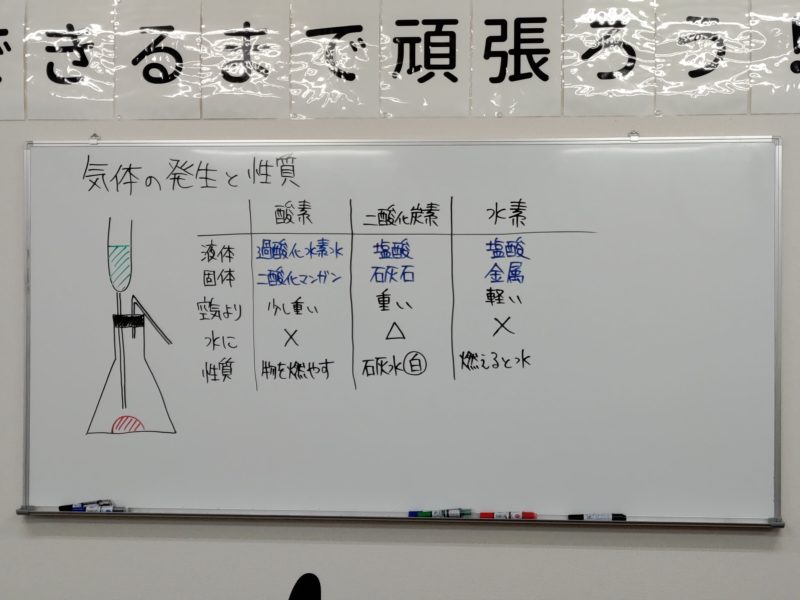 できるまで頑張ろう!
気体の発生と性質
酸素 二酸化炭素 水素
液体 過酸化水素水 塩酸 塩酸
固体 二酸化マンガン 石灰石 金属
空気より 少し重い 重い 軽い
水に × △ ×
性質 物を燃やす 石灰水白 燃えると水